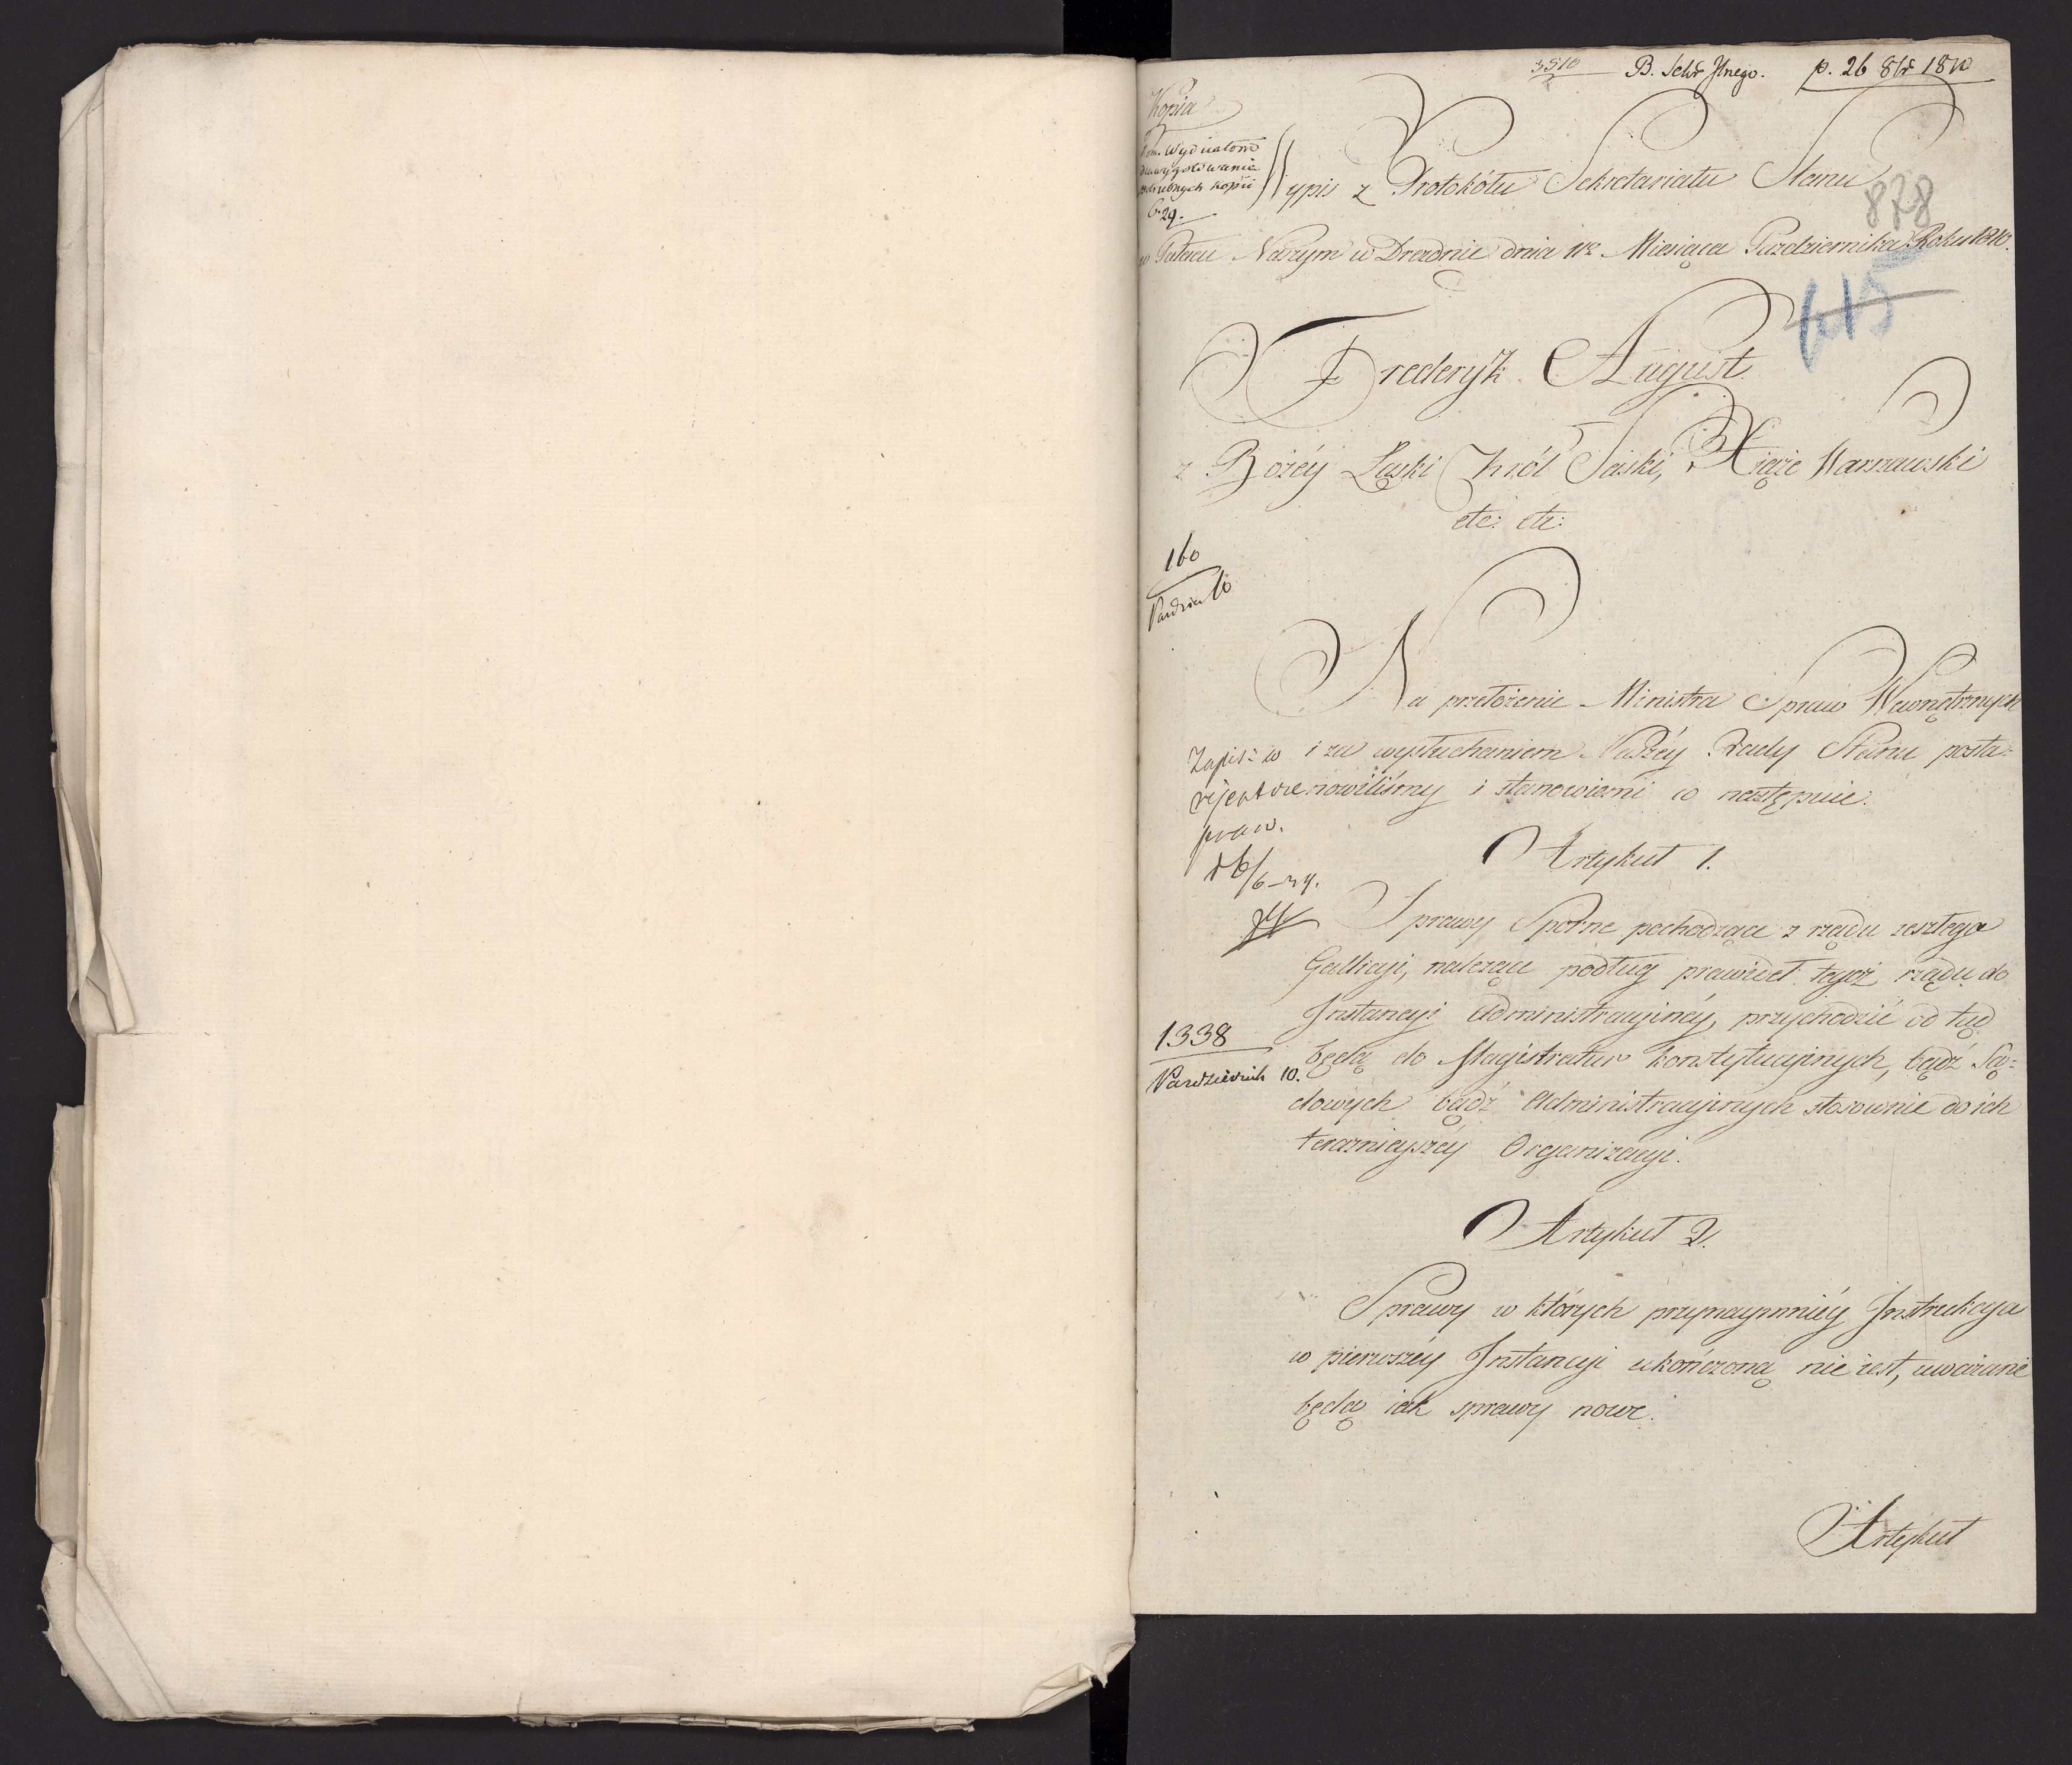 3510 B. Sekr Jlnego. p. 26 8br 1810
Kopia
Wydziałom
dla wygotowania
potrzebnych kopii
6.29.
Wypis z Protokółu Sekretariatu Stanu
878
w Pałacu Naszym w Dreźnie dnia 11g Miesiąca Października Roku 1810.
615
Frederyk August
z Bożéy Łaski Król Saski, Xiąże Warszawski
etc: etc:
160
Paździer 10
Na przełożenie Ministra Spraw Wewnętrznych
i za wysłuchaniem Naszéy Rady Stanu posta-
nowiliśmy i stanowiemy co następuie:
Zapis: w
rejestrze
praw.
d 6/6-29.
Artykuł 1.
Sprawy Sporne pochodzące z rządu zeszłego
Gallicyi, należące podług prawideł tegoż rządu do
Instancyi Administracyinéy, przychodzić od tąd
będą do Magistratur konstytucyinych, bądź Są-
dowych bądź Administracyinych stosownie do ich
teraźnieyszéy Organizacyi.
1338
Paździenik 10.
Artykuł 2.
Sprawy w których przynaymniéy Instrukcya
w pierwszéy Instancyi ukończoną nie iest, uważane
będą iak sprawy nowe.
Artykuł